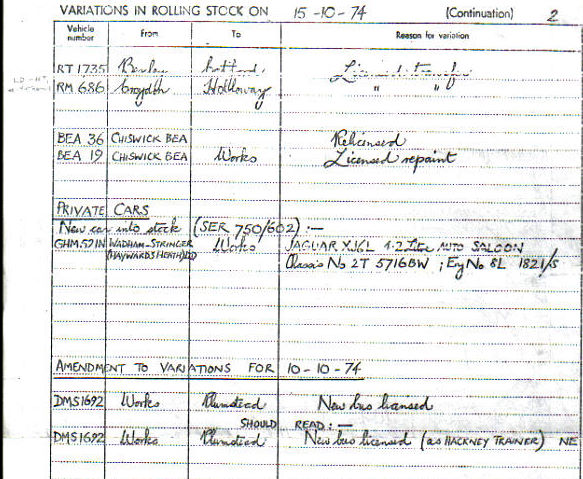 VARIATIONS IN ROLLING STOCK ON 15-10-74 (Continuation) 2
Vehicle number From To Reason for variation
RT 1735 Licensed transfer
RM 686 Croydon Holloway " "
BEA 36 CHISWICK BEA Relicensed
BEA 19 CHISWICK BEA Works Licensed repaint
PRIVATE CARS
New car into stock (SER 750/602) :—
GHM 521N WADHAM-STRINGER Works JAGUAR XJ6L 4.2 Litre AUTO SALOON
(HAYWARDS HEATH) LTD Chassis No 2T 5716BW ; Eng No 8L 1821/S
AMENDMENT TO VARIATIONS FOR 10-10-74
DMS1692 Works Plumstead New bus licensed
SHOULD READ :—
DMS1692 Works Plumstead New bus licensed (as HACKNEY TRAINER) NE